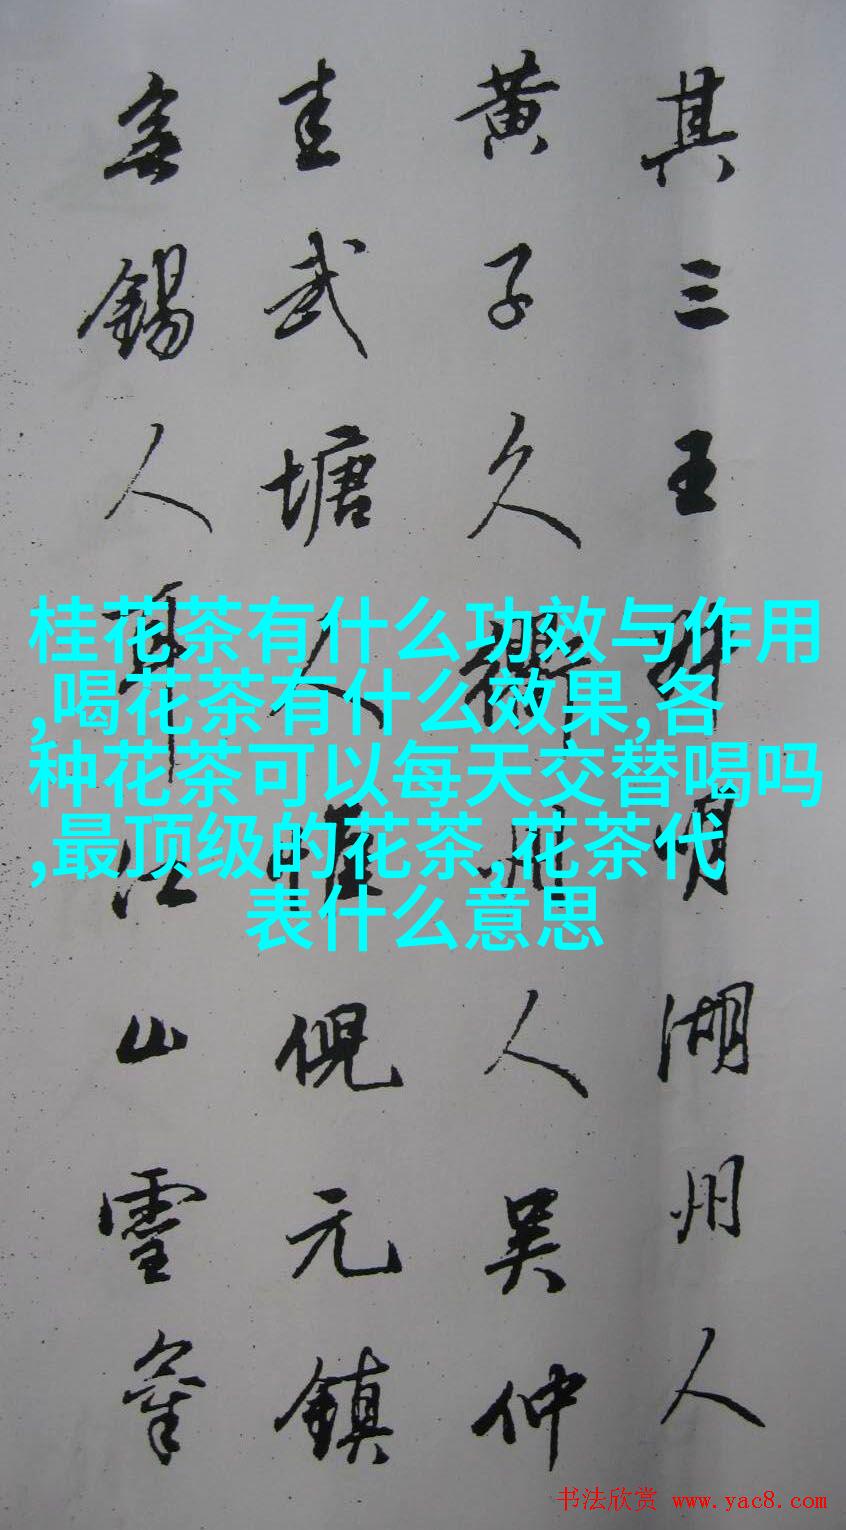 其三王叔明湖州人
黄子久衢州人吳仲
圭武塘人惟倪元鎮
無錫人耳江山靈氣
桂花茶有什么功效与作用
,喝花茶有什么效果,各
种花茶可以每天交替喝吗
,最顶级的花茶,花茶代
表什么意思
书法欣赏 www.yac8.com